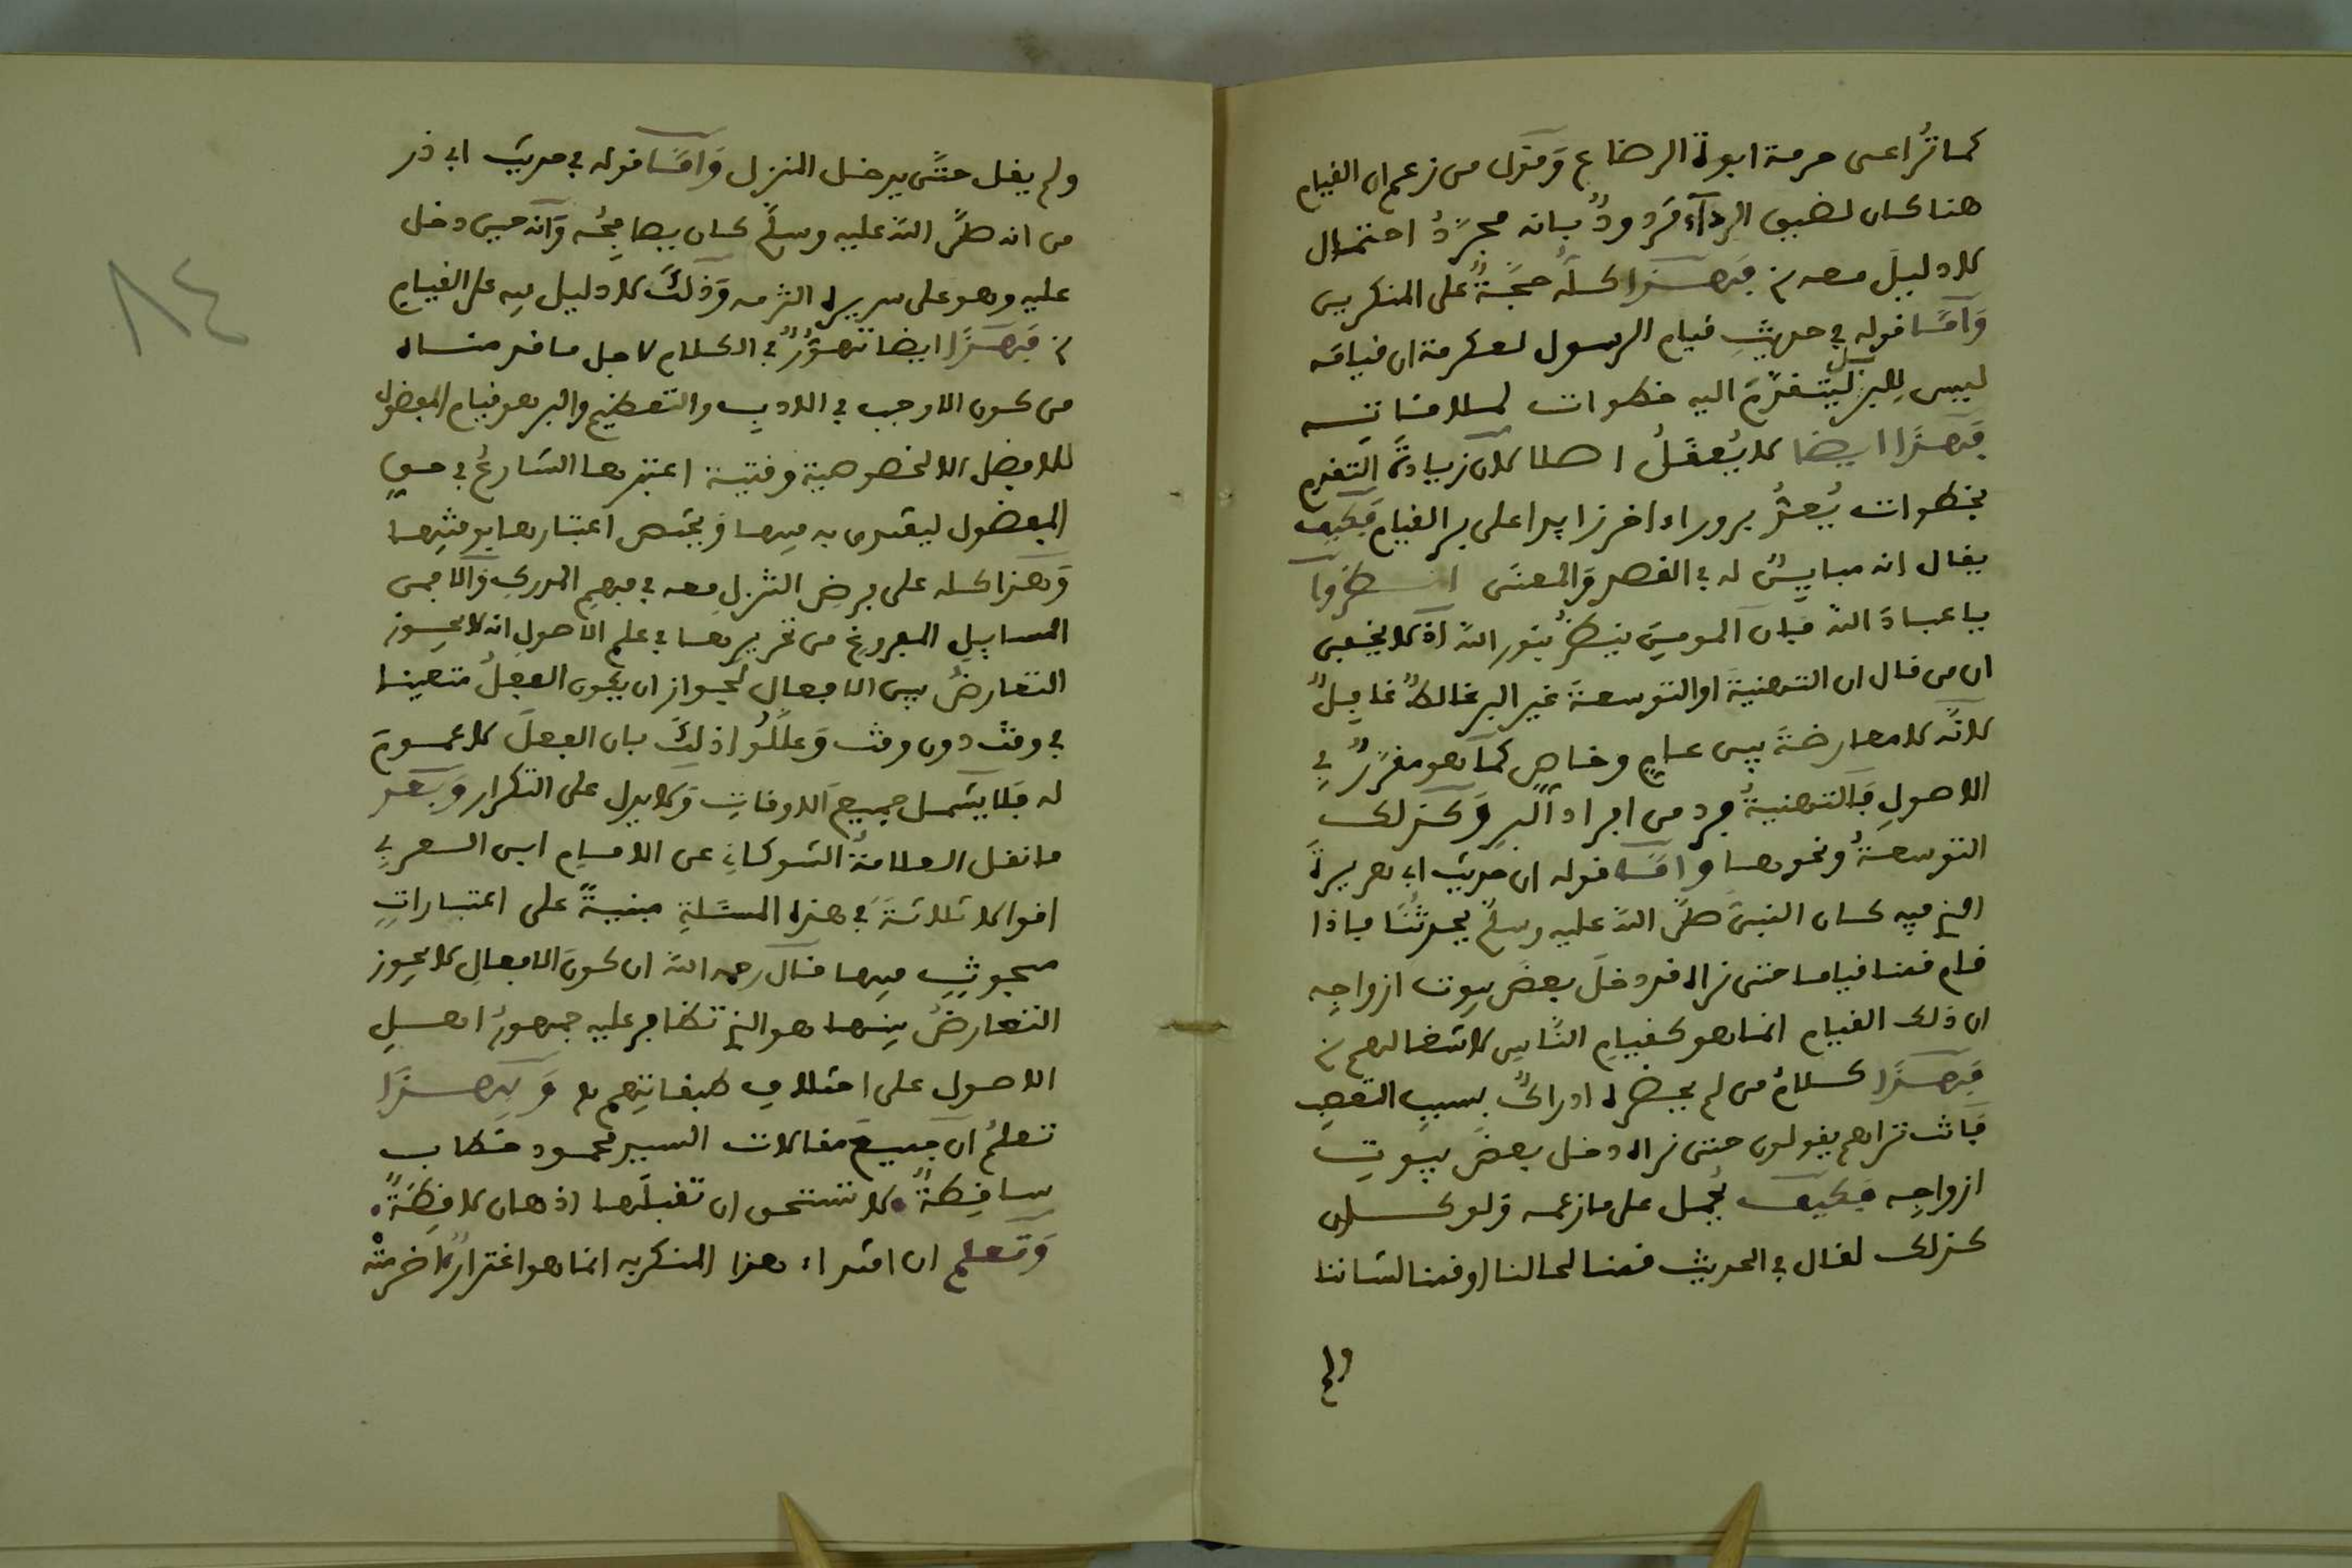 كما تُراعى حرمة ابوة الرضاع وَقول من زعم ان القيام
هنا كان لضيق الردآء مَردودٌ بانه مجرّدُ احتمال
لا دليلَ معه ۾ فَهـذا كلّه حجّـةٌ على المنكرين
وَاَمّا قوله في حديثِ قيام الرسول لعكرمة ان قيامَه
ليس لِلبرّ بل ليتقدّم اليه خطوات لملاقاتـه
فَهـذا ايضا لا يُعقَلُ اصلا لان زيادةَ التقدم
بخطوات يُعدُّ برورا اخر زايدا على بر القيام فَكيف
يقال انه مباينٌ له في القصد وَالمعنى انـظروا
يا عبادَ اللّه فَان المومنَ ينظرُ بنور اللّه اذ لا يخفى
ان من قال ان التـهنيةَ او التوسعةَ غير البر غالطٌ غافِلٌ
لانّه لا معارضةَ بين عـامٍ وخاصٍ كما هو مقرّرٌ في
الاصولِ فَالتهنيةُ فرد من افراد البِر وَكـذلك
التوسعـةُ ونحوهـا وامّـا قوله ان حديث ابي هريرةَ
الذي فيه كـان النبىّ صلّى اللّه عليه وسلّم يحدثُنا فاذا
قـام قمنـا قيامـا حتى نراه قد دخلَ بعضَ بيوت ازواجِه
ان ذلك القيام انمـا هو كقيامِ النّاسِ لاشغالهم ۾
فَهـذا كـلامُ من لم يحضره ادراكٌ بسببِ التعصب
فَانت تراهم يقولون حتى نراه دخل بعضَ بيوتِ
ازواجِه فَكيـف يُحمل على ما زعمـه وَلو كـان
كـذلك لقـال في الحديث قمنـا لحالنا او قمنا لشاننا
ولم
ولم يقل حتَّى يدخل المنزل وَامّـا قوله في حديث ابي ذر
من انه صلَّى اللّه عليه وسلّم كـان يصافِحُـه وَانه حين دخل
عليه وهو على سريره التزمـه وَذلكَ لا دليل فيه على القيام
۾ فَهـذَا ايضا تهـوُّرٌ في الكـلام لاجل ما قدمنـاه
من كـون الاوجب في الادبِ والتعظيم والبر هو قيام المفضول
للافضل الا لخصوصية وقتيـة اعتبرهـا الشارعُ في حـق
المفضول ليقتدى به فيهـا وَيختص اعتبارهـا بوقتِهـا
وَهـذا كلـه على فرضِ التنزلِ معـه في فهمِ المدركِ وَالا فمن
المسايلِ المفروغِ من تحريرهـا في علم الاصولِ انه لا يجـوز
التعارضُ بين الافعـال لجواز ان يكون الفعلُ متعينـا
في وقتٍ دون وقت وَعلَّلُوا ذلِكَ بان الفعلَ لا عمـومَ
له فَلا يشمـل جميعَ الاوقاتِ وَلا يدل على التكرار وَبَعد
ما نقـل العلامةُ الشوكاني عن الامـام ابن العـربي
اقوالا ثلاثـةً في هذه المسئلةِ مبنيـةً على اعتبـاراتٍ
مبحوثٍ فيهـا قـال رحمه اللّه ان كـونَ الافعـالِ لا يجـوز
التعارضُ بينهـا هو الذي تظافر عليه جمهورُ اهـل
الاصول على اختلافِ طبقاتِهم ۾ وَبِهـذا
تعلمُ ان جميعَ مقالات السيد محمـود خطاب
سـاقِطـةٌ. لا تستحق ان تقبلَهـا اذهـان لاقِطَةٌ.
وَتعلم ان اقتداء هذا المنكر به انمـا هو اغترارٌ اخرجتْه
٨٤